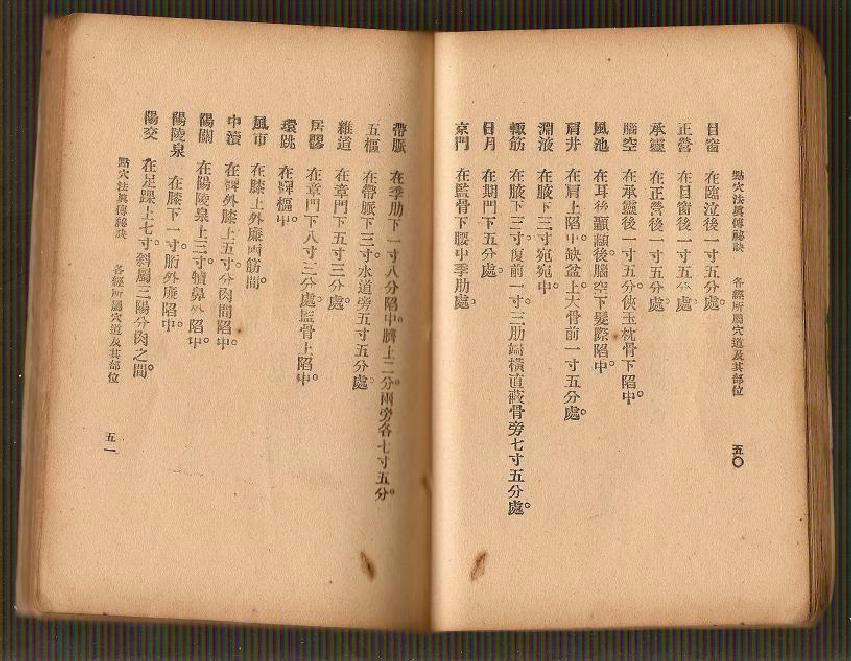 點穴法眞傳秘訣 各經所屬穴道及其部位 五〇
目窗 在臨泣後一寸五分處。
正營 在目窗後一寸五分處。
承靈 在正營後一寸五分處。
腦空 在承靈後一寸五分。俠玉枕骨下陷中。
風池 在耳後顳顬後。腦空下髮際陷中。
肩井 在肩上陷中。缺盆上大骨前一寸五分處。
淵液 在腋下三寸宛宛中。
輒筋 在腋下三寸。復前一寸。三肋端橫直蔽骨旁七寸五分處。
日月 在期門下五分處。
京門 在監骨下腰中季肋處。
帶脈 在季肋下一寸八分陷中。臍上二分。兩旁各七寸五分。
五樞 在帶脈下三寸。水道旁五寸五分處。
維道 在章門下五寸三分處。
居髎 在章門下八寸三分處。監骨上陷中。
環跳 在髀樞中。
風市 在膝上外廉兩筋間。
中瀆 在髀外膝上五寸。分肉間陷中。
陽關 在陽陵泉上三寸。犢鼻外陷中。
陽陵泉 在膝下一寸。胻外廉陷中。
陽交 在足踝上七寸。斜屬三陽分肉之間。
點穴法眞傳秘訣 各經所屬穴道及其部位 五一